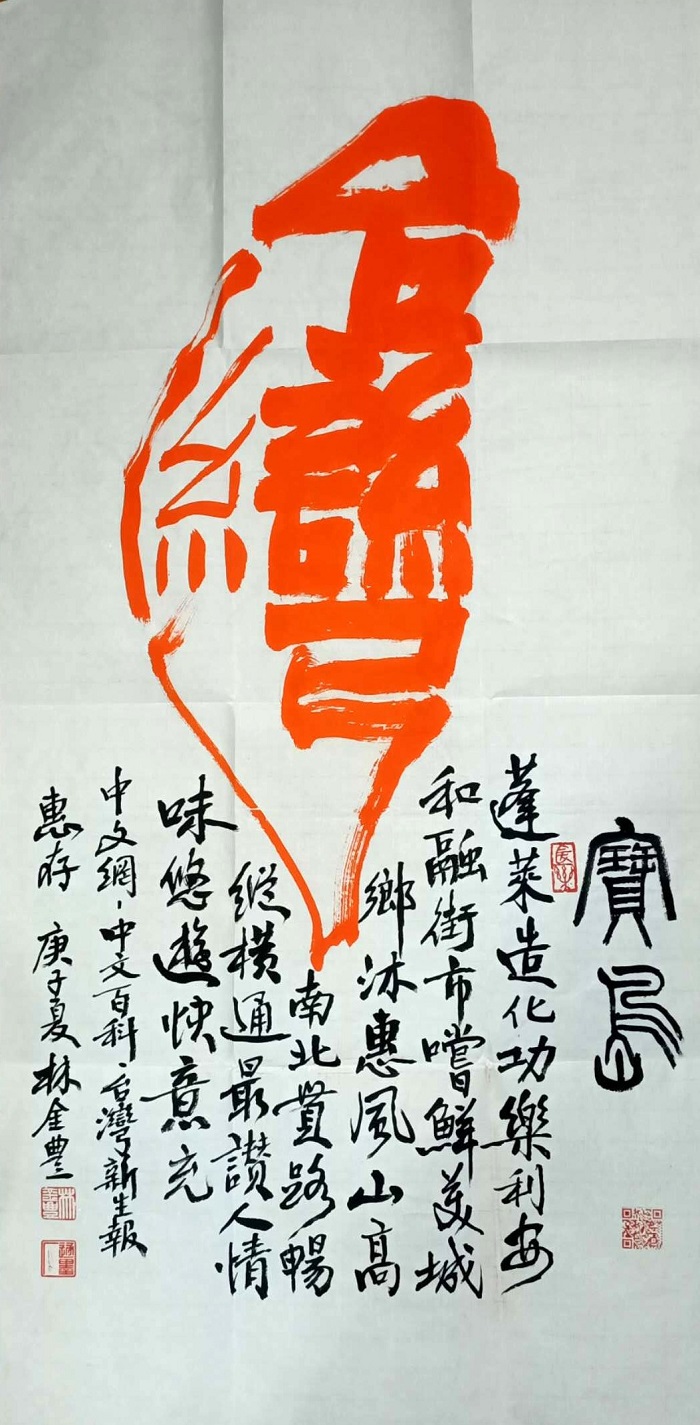 台灣
寶島
蓬萊造化功樂利安
和融街市嚐鮮美城
鄉沐惠風山高
南北貫路暢
縱橫通最讚人情
味悠遊快意充
中文網、中文百科、台灣新生報
惠存 庚子夏 林金豊